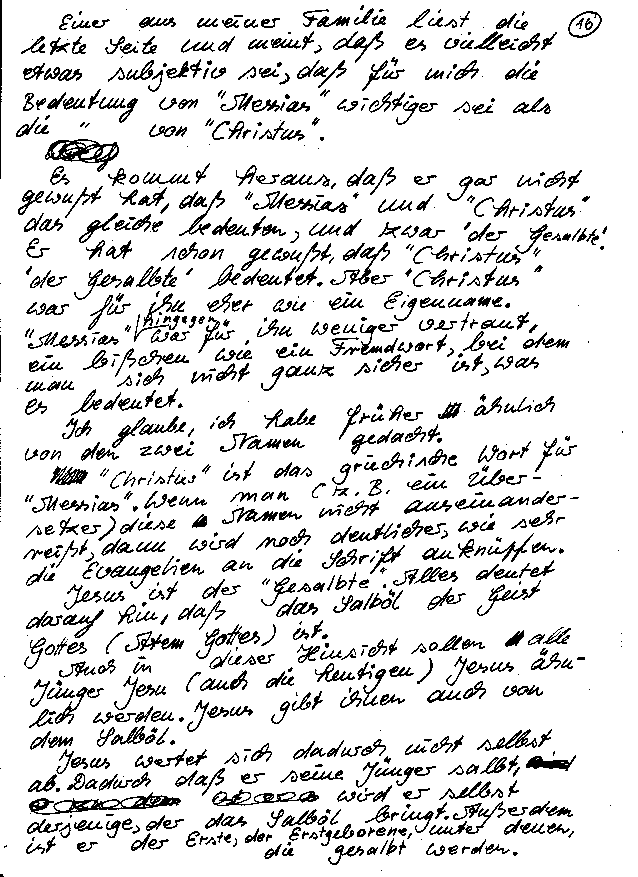 Einer aus meiner Familie liest die
16
letzte Seite und meint, daß es vielleicht
etwas subjektiv sei, daß für mich die
Bedeutung von "Messias" wichtiger sei als
die " von "Christus".
Es kommt heraus, daß er gar nicht
gewußt hat, daß "Messias" und "Christus"
das gleiche bedeuten, und zwar 'der Gesalbte'.
Er hat schon gewußt, daß "Christus"
'der Gesalbte' bedeutet. Aber "Christus"
war für ihn eher wie ein Eigenname.
"Messias" hingegen war für ihn weniger vertraut,
ein bißchen wie ein Fremdwort, bei dem
man sich nicht ganz sicher ist, was
es bedeutet.
Ich glaube, ich habe früher ähnlich
von den zwei Namen gedacht.
"Christus" ist das griechische Wort für
"Messias". Wenn man (z.B. ein Über-
setzer) diese Namen nicht auseinander-
reißt, dann wird noch deutlicher, wie sehr
die Evangelien an die Schrift anknüpfen.
Jesus ist der "Gesalbte". Alles deutet
darauf hin, daß das Salböl der Geist
Gottes (Atem Gottes) ist.
Auch in dieser Hinsicht sollen alle
Jünger Jesu (auch die heutigen) Jesus ähn-
lich werden. Jesus gibt ihnen auch von
dem Salböl.
Jesus wertet sich dadurch nicht selbst
ab. Dadurch daß er seine Jünger salbt,
wird er selbst
derjenige, der das Salböl bringt. Außerdem
ist er der Erste, der Erstgeborene, unter denen,
die gesalbt werden.